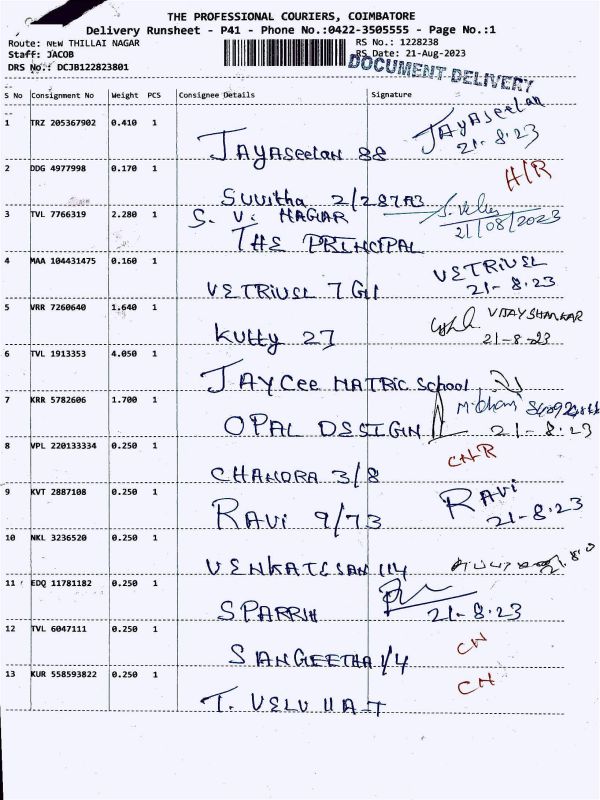 THE PROFESSIONAL COURIERS, COIMBATORE
Delivery Runsheet - P41 - Phone No.:0422-3505555 - Page No.:1
Route: NEW THILLAI NAGAR RS No.: 1228238
Staff: JACOB RS Date: 21-Aug-2023
DRS No.: DCJB122823801 DOCUMENT DELIVERY
S No Consignment No Weight PCS Consignee Details Signature
1 TRZ 205367902 0.410 1 JAYASeelan 88 JAYASeelan
21-8-23
2 DDG 4977998 0.170 1 Suvitha 2/287A3 H/R
3 TVL 7766319 2.280 1 S. V. NAGAR
THE PRINCIPAL 21/08/2023
4 MAA 104431475 0.160 1 VETRIVEL 7 G11 VETRIVEL
21-8.23
5 VRR 7260640 1.640 1 Kutty 27 VIJAYSHANKAR
21-8-23
6 TVL 1913353 4.050 1 JAYCee MATRIC School
7 KRR 5782606 1.700 1 OPAL DESIGN 21-8.23
8 VPL 220133334 0.250 1 CHANDRA 3/8 CNR
9 KVT 2887108 0.250 1 RAVI 9/73 RAVI
21-8.23
10 NKL 3236520 0.250 1 VENKATESAN 114
11 EDQ 11781182 0.250 1 SPARRSH 21-8.23
12 TVL 6047111 0.250 1 SANGEETHA 1/4 CN
13 KUR 558593822 0.250 1 T. VELU 11A-T CN